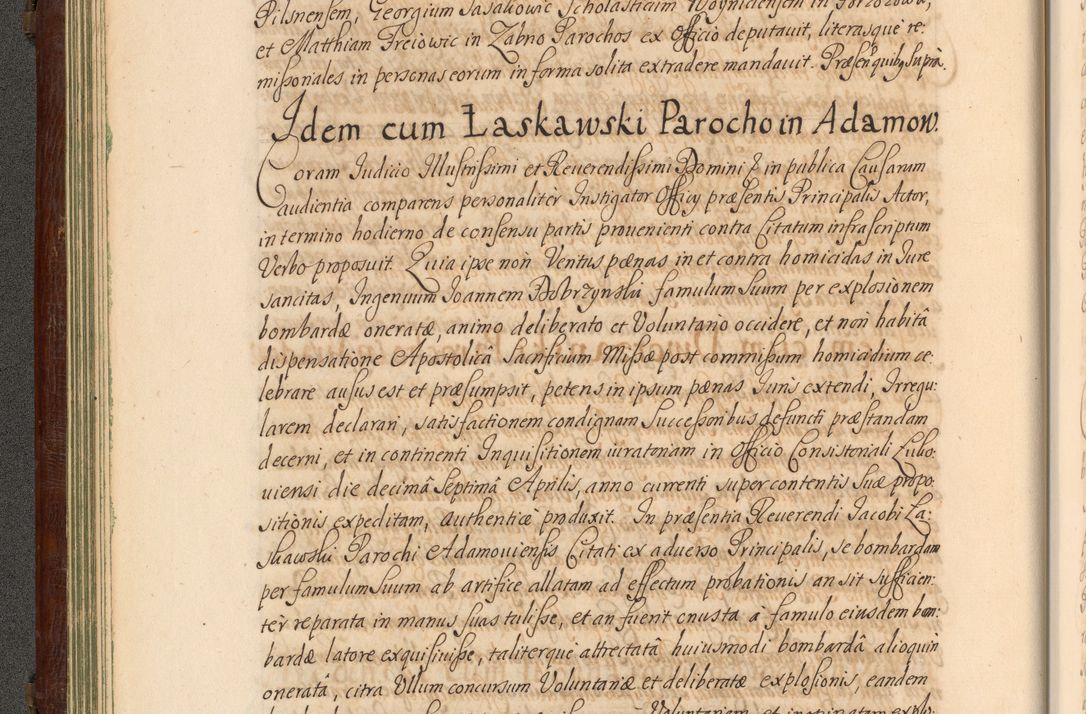 Pilsnensem, Georgium Jasakowic Scholasticum Woyniciensem in Gorzozowa,
et Matthiam Treiowic in Zabno Parochos ex officio deputavit, literasque re:
mißionales in personas eorum in forma solita extradere mandavit. Præsen: quibus supra.
Idem cum Łaskawski Parocho in Adamow.
Coram Iudicio Illustrißimi et Reuerendißimi Domini & in publica Causarum
audientia comparens personalitèr Instigator Officij præsentis Principalis Actor,
in termino hodierno de consensu partis prouenienti contra Citatum infrascriptum
Verbo proposuit. Quia ipse non Veritus pænas in et contra homicidas in Iure
sancitas, Ingenuum Ioannem Dobrzynski famulum suum per explosionem
bombardæ oneratæ, animo deliberato et Voluntario occidere, et non habitâ
dispensatione Apostolicâ Sacrificium Missæ post commißum homicidium ce:
lebrare ausus est et præsumpsit, petens in ipsum pænas Iuris extendi, Irregu:
larem declarari, satisfactionem condignam Successoribus defuncti præstandam
decerni, et in continenti Inquisitionem iuratoriam in Officio Consistoriali Lublo:
uiensi die decimâ Septimâ Aprilis, anno currenti super contentis suæ propo:
sitionis expeditam, authenticè produxit. In præsentia Reuerendi Iacobi La:
skawski Parochi Adamouiensis Citati ex aduerso Principalis, se bombardam
per famulum suum ab artifice allatam ad effectum probationis an sit sufficien:
ter reparata in manus suas tulisse, et an fuerit onusta à famulo eiusdem bom:
bardæ latore exquisiuiße, taliterque attrectatâ huiusmodi bombardâ alioquin
oneratâ, citra Ullum concursum Voluntariæ et deliberatæ explosionis, eandem